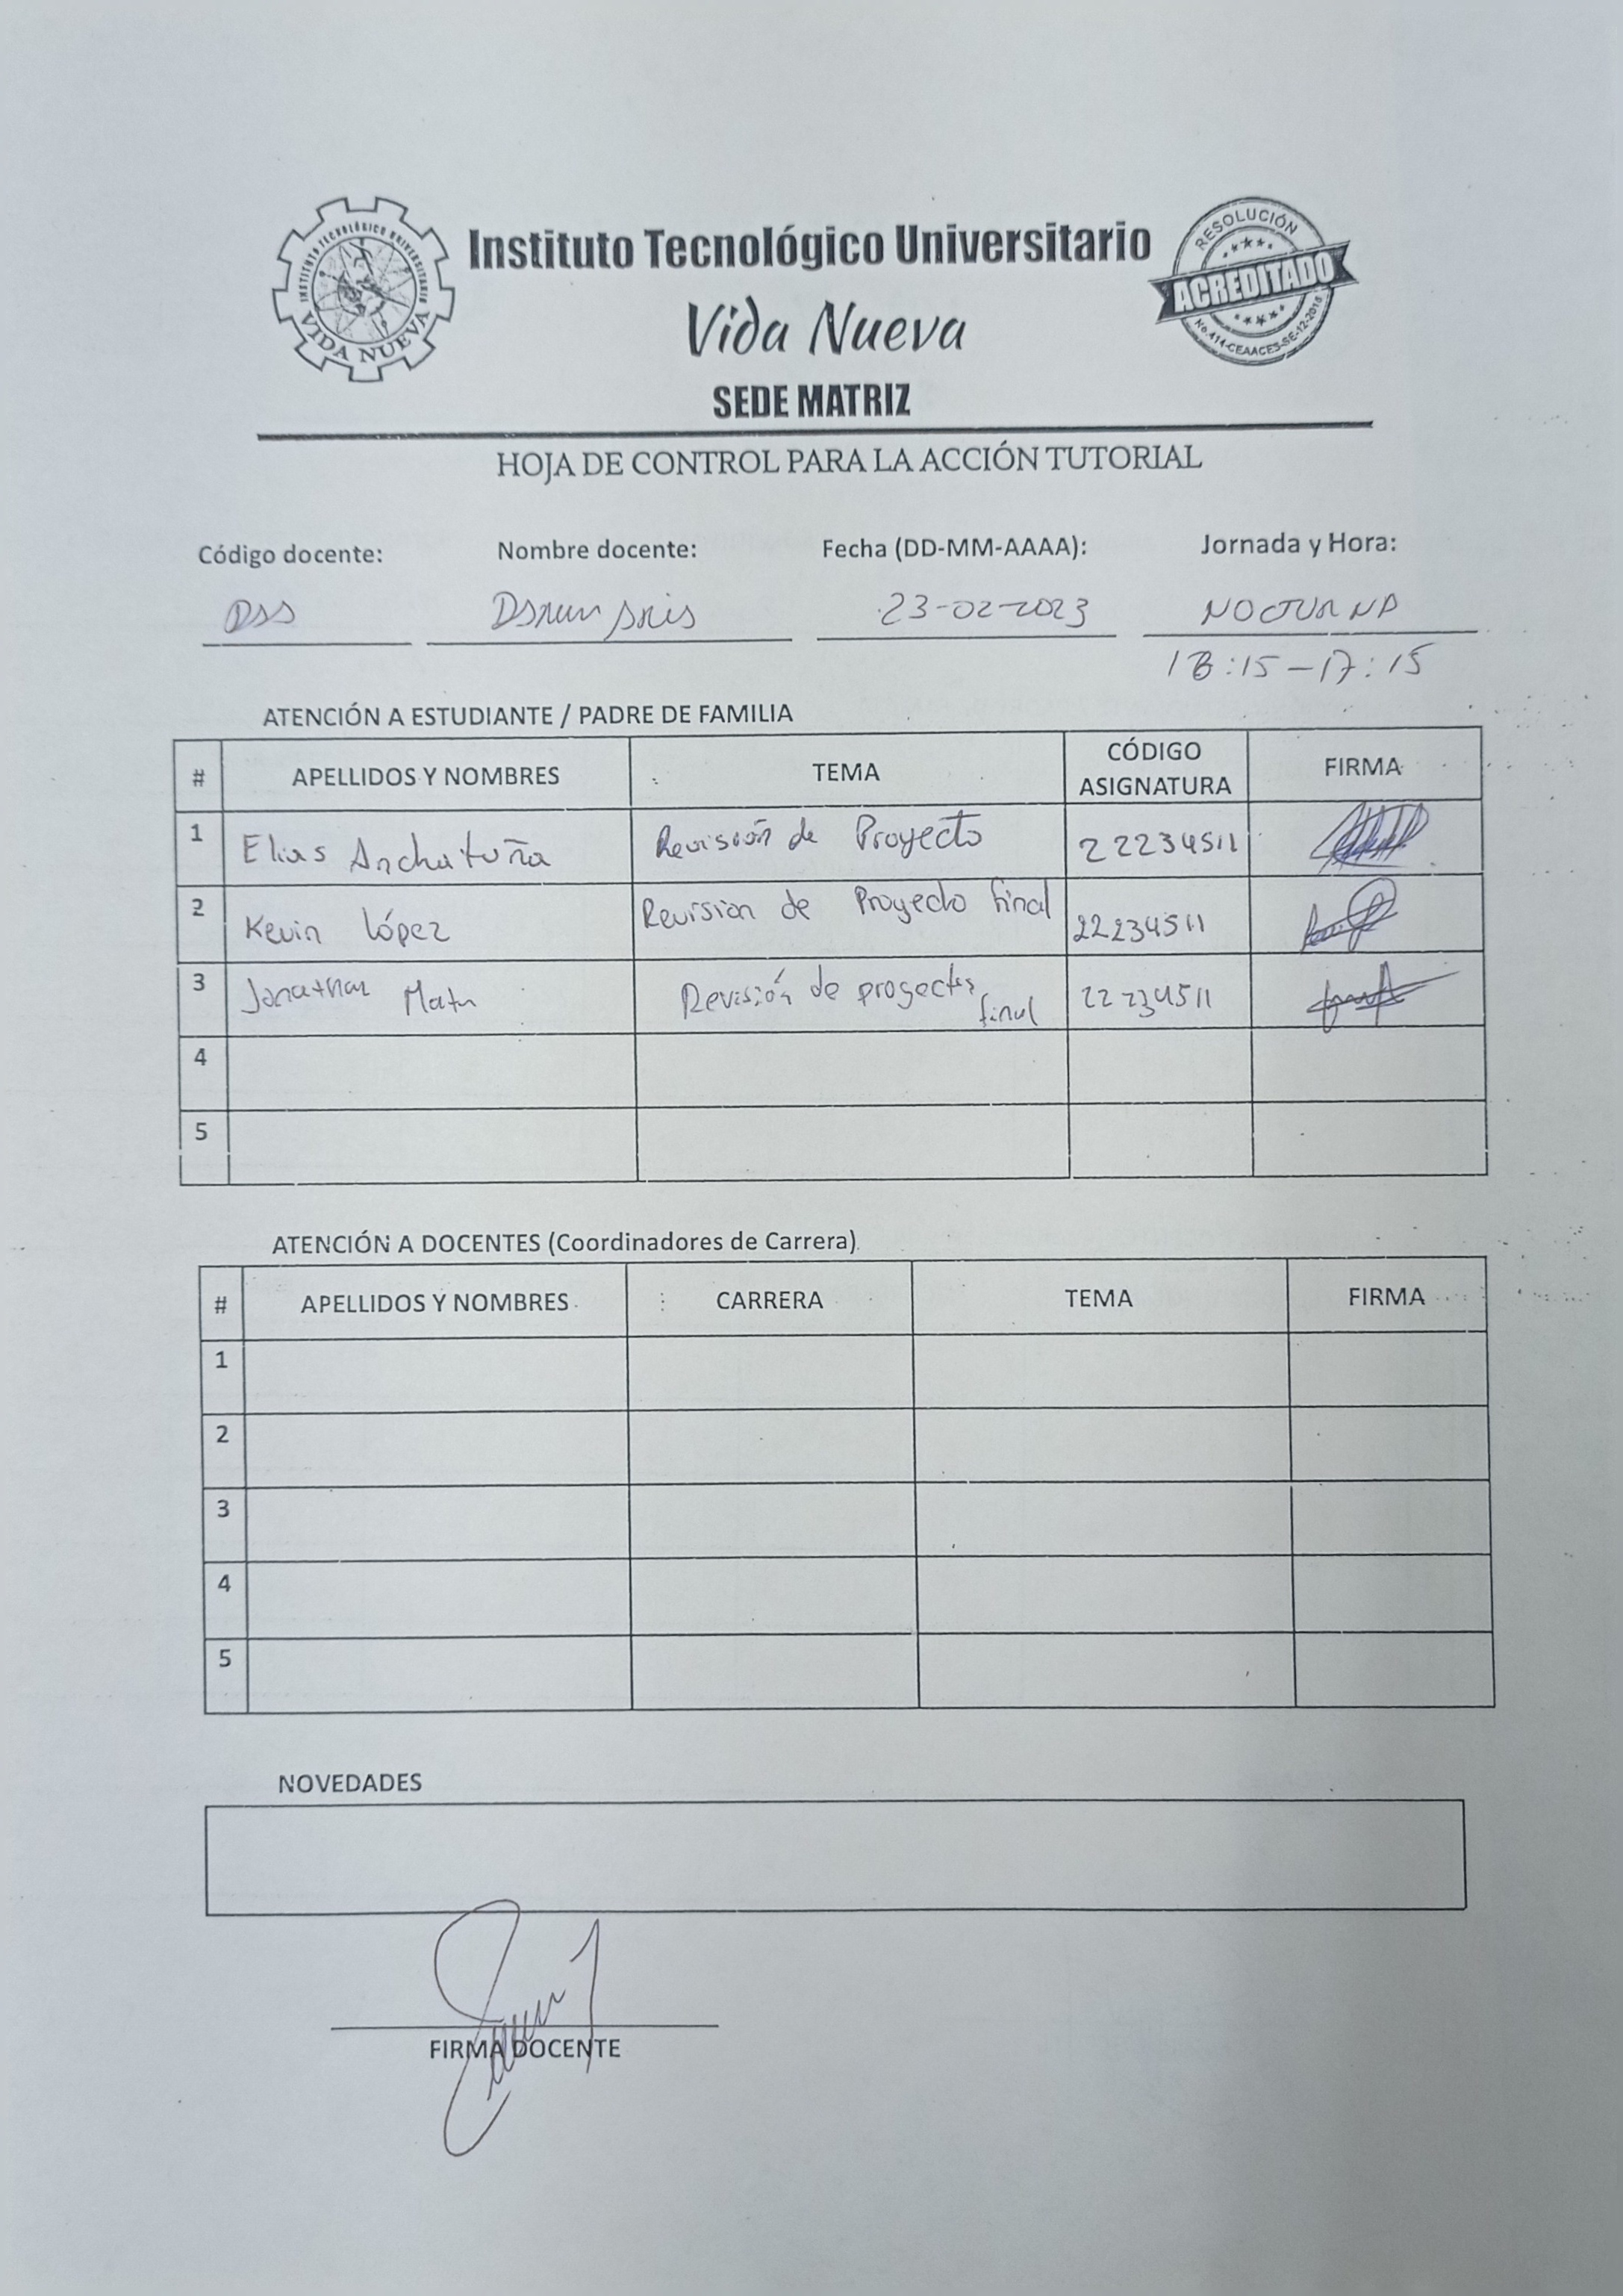 INSTITUTO TECNOLÓGICO UNIVERSITARIO
VIDA NUEVA
Instituto Tecnológico Universitario
Vida Nueva
SEDE MATRIZ
RESOLUCIÓN
ACREDITADO
No.414-CEAACES-SE-12-2016
HOJA DE CONTROL PARA LA ACCIÓN TUTORIAL
Código docente: Nombre docente: Fecha (DD-MM-AAAA): Jornada y Hora:
DSS 23-02-2023 NOCTURNA
:15-17:15
ATENCIÓN A ESTUDIANTE / PADRE DE FAMILIA
# APELLIDOS Y NOMBRES TEMA CÓDIGO ASIGNATURA FIRMA
1 Elias Anchatuña Revisión de Proyecto 22234511
2 Kevin López Revision de Proyecto final 22234511
3 Jonathan Revisión de final 22234511
4
5
ATENCIÓN A DOCENTES (Coordinadores de Carrera)
# APELLIDOS Y NOMBRES CARRERA TEMA FIRMA
1
2
3
4
5
NOVEDADES
FIRMA DOCENTE